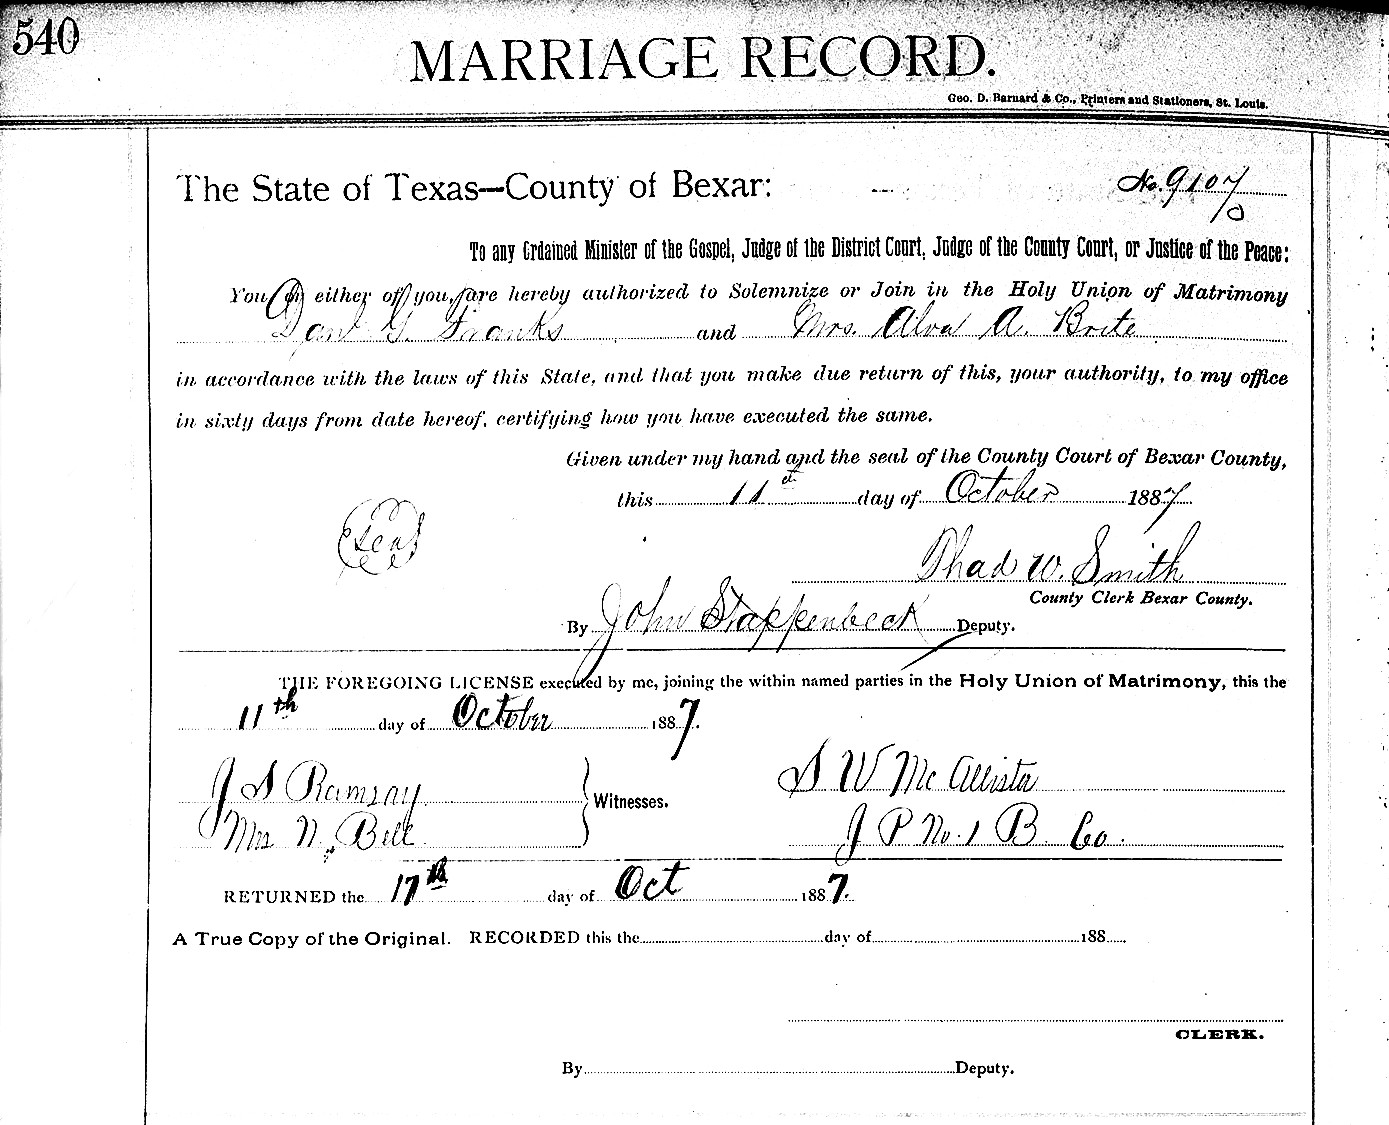 540
MARRIAGE RECORD.
Geo. D. Barnard & Co., Printers and Stationers, St. Louis.
The State of Texas—County of Bexar:
No. 9107
To any Ordained Minister of the Gospel, Judge of the District Court, Judge of the County Court, or Justice of the Peace:
You, or either of you, are hereby authorized to Solemnize or Join in the Holy Union of Matrimony
Danl G. Franks and Mrs. Alva A. Brite
in accordance with the laws of this State, and that you make due return of this, your authority, to my office
in sixty days from date hereof, certifying how you have executed the same.
Given under my hand and the seal of the County Court of Bexar County,
this 11th day of October 1887
Seal
Thad W. Smith
County Clerk Bexar County.
By John Stappenbeck Deputy.
THE FOREGOING LICENSE executed by me, joining the within named parties in the Holy Union of Matrimony, this the
11th day of October 1887.
J S Ramsay
Mrs N. Bell
Witnesses.
S W McAllister
J P No. 1 B Co.
RETURNED the 17th day of Oct 1887.
A True Copy of the Original. RECORDED this the day of 188
CLERK.
By Deputy.